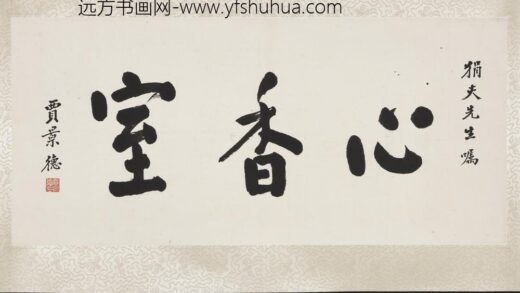 远方书画网-www.yfshuhua.com
狷夫先生嘱
心香室
贾景德